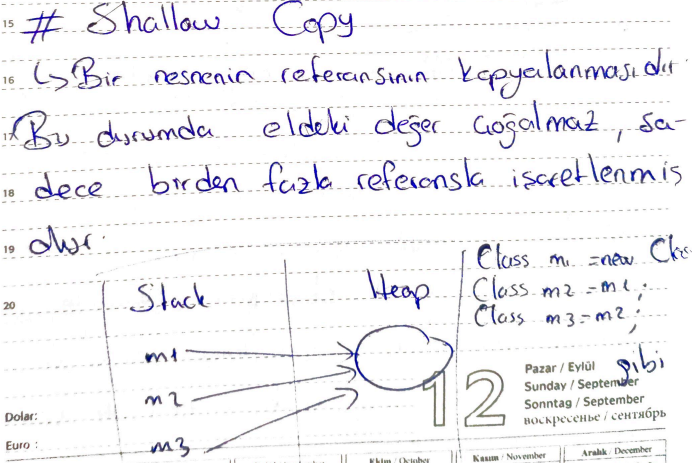 15 # Shallow Copy
16 ↳ Bir nesnenin referansının kopyalanmasıdır.
17 Bu durumda eldeki değer çoğalmaz, sa-
18 dece birden fazla referansla işaretlenmiş
19 olur.
20
Stack
Heap
m1
m2
m3
Class m1 = new Clas
Class m2 = m1;
Class m3 = m2;
gibi
12
Pazar / Eylül
Sunday / September
Sonntag / September
воскресенье / сентябрь
Dolar:
Euro :
Ekim / October
Kasım / November
Aralık / December